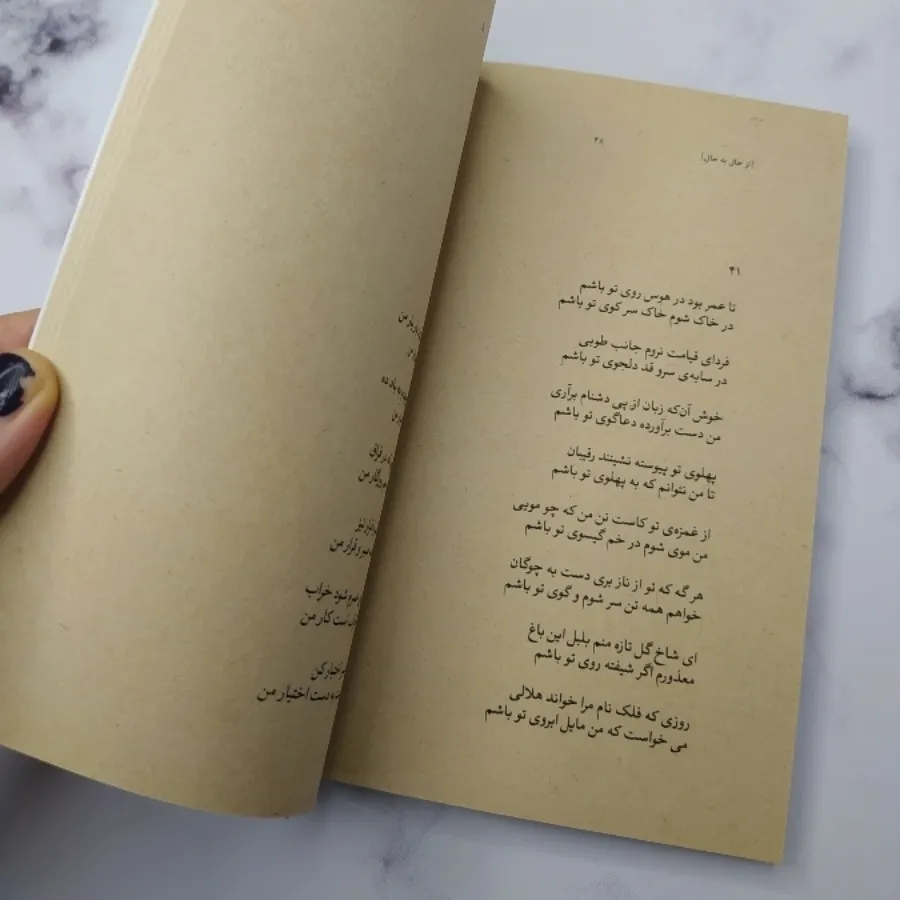 [از حال به حال]
۳۸
۴۱
تا عمر بود در هوس روی تو باشم
در خاک شوم خاک سر کوی تو باشم
فردای قیامت نروم جانب طوبی
در سایه‌ی سرو قد دلجوی تو باشم
خوش آن‌که زبان از پی دشنام برآری
من دست برآورده دعاگوی تو باشم
پهلوی تو پیوسته نشینند رقیبان
تا من نتوانم که به پهلوی تو باشم
از غمزه‌ی تو کاست تن من که چو مویی
من موی شوم در خم گیسوی تو باشم
هر گه که تو از ناز بری دست به چوگان
خواهم همه تن سر شوم و گوی تو باشم
ای شاخ گل تازه منم بلبل این باغ
معذورم اگر شیفته روی تو باشم
روزی که فلک نام مرا خواند هلالی
می خواست که من مایل ابروی تو باشم
من
در فراق
روزگار من
و قرار من
شود خراب
است کار من
اختیار کن
دست اختیار من